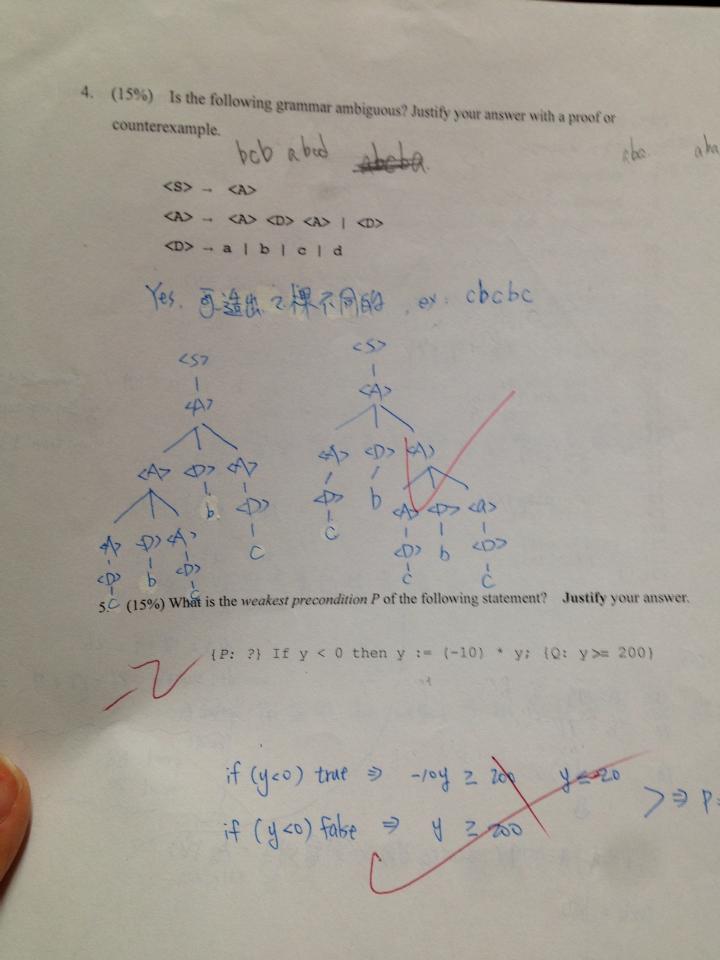 4. (15%) Is the following grammar ambiguous? Justify your answer with a proof or
counterexample.
bcb abcd abcba. abc. aba
<S> → <A>
<A> → <A> <D> <A> | <D>
<D> → a | b | c | d
Yes. 可造出2棵不同的, ex: cbcbc
<S> <S>
<A> <A>
<A> <D> <A> <A> <D> <A>
b <D> <D> b
<A> <D> <A> c c <A> <D> <a>
<D> b <D> <D> b <D>
c c c c
5. (15%) What is the weakest precondition P of the following statement? Justify your answer.
-2 {P: ?} If y < 0 then y := (-10) * y; {Q: y>= 200}
if (y<0) true ⇒ -10y ≥ 200 y ≤ -20
⇒ P:
if (y<0) false ⇒ y ≥ 200